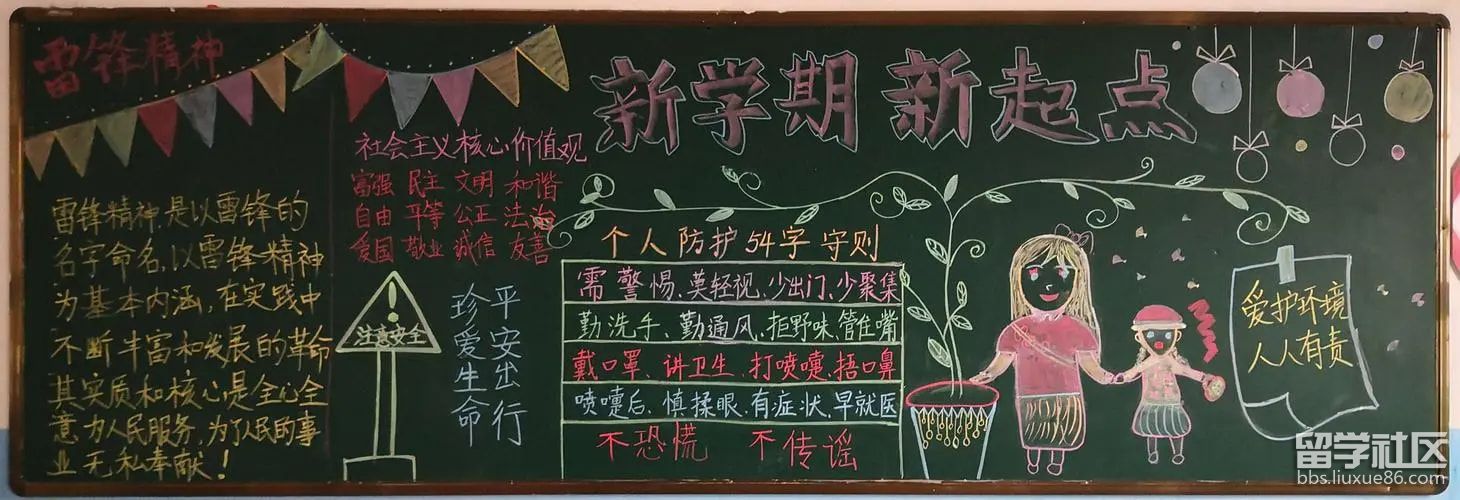 雷锋精神
雷锋精神,是以雷锋的
名字命名,以雷锋精神
为基本内涵,在实践中
不断丰富和发展的革命
其实质和核心是全心全
意为人民服务,为了人民的事
业无私奉献!
社会主义核心价值观
富强 民主 文明 和谐
自由 平等 公正 法治
爱国 敬业 诚信 友善
注意安全
平安出行
珍爱生命
新学期 新起点
个人防护54字守则
需警惕、莫轻视、少出门、少聚集
勤洗手、勤通风、拒野味、管住嘴
戴口罩、讲卫生、打喷嚏、捂口鼻
喷嚏后、慎揉眼、有症状、早就医
不恐慌 不传谣
爱护环境
人人有责
留学社区
bbs.liuxue86.com